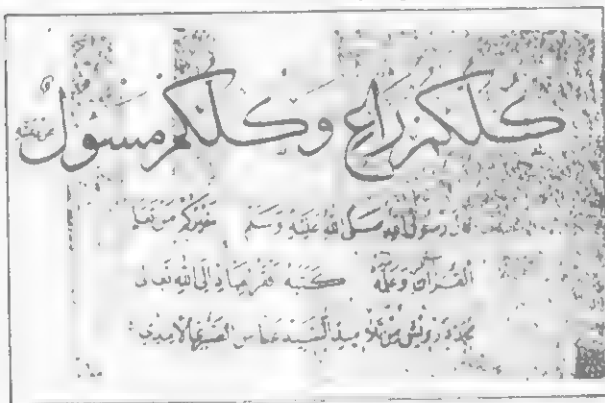 كلكم راع وكلكم مسؤل عن رعيته
قال رسول الله صلى الله عليه وسلم خيركم من تعلم
القرآن وعلمه كتبه فقير عباد الله تعالى
محمد درويش من تلاميذ السيد عباس